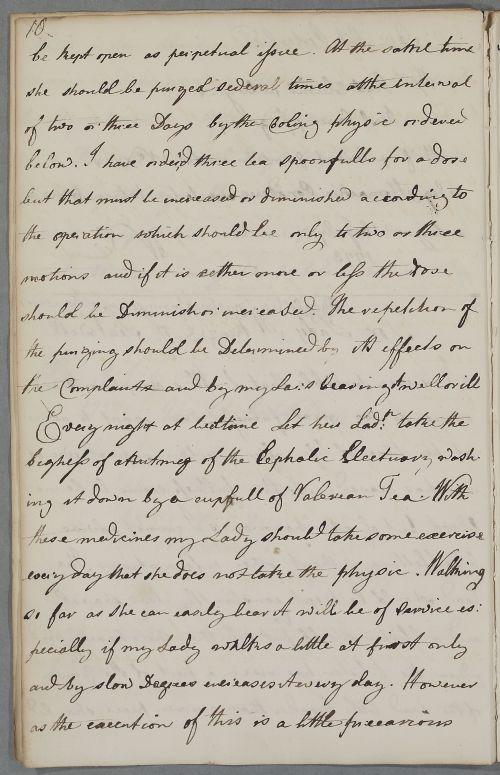 10
be kept open as perpetual issue. At the same time
she should be purged several times at the interval
of two or three Days by the Coling physic ordered
below. I have orderd three tea spoonfulls for a dose
but that must be increased or diminished according to
the operation which should be only to two or three
motions and if it is eether more or less the dose
should be Diminish or increased. The repetition of
the purging should be Determined by its effects on
the Complaints and by my La:s bearing it well or ill
Every night at bedtime Let her Lad:p take the
bigness of a Nutmeg of the Cephalic Electuary wash-
ing it down by a cupfull of Valerian Tea. With
these medicines my Lady should take some exercise
every day that she does not take the physic. Walking
so far as she can easily bear it will be of service es:
pecially if my Lady walks a little at first only
and by slow Degrees increases it every day. However
as the execution of this is a little precarious